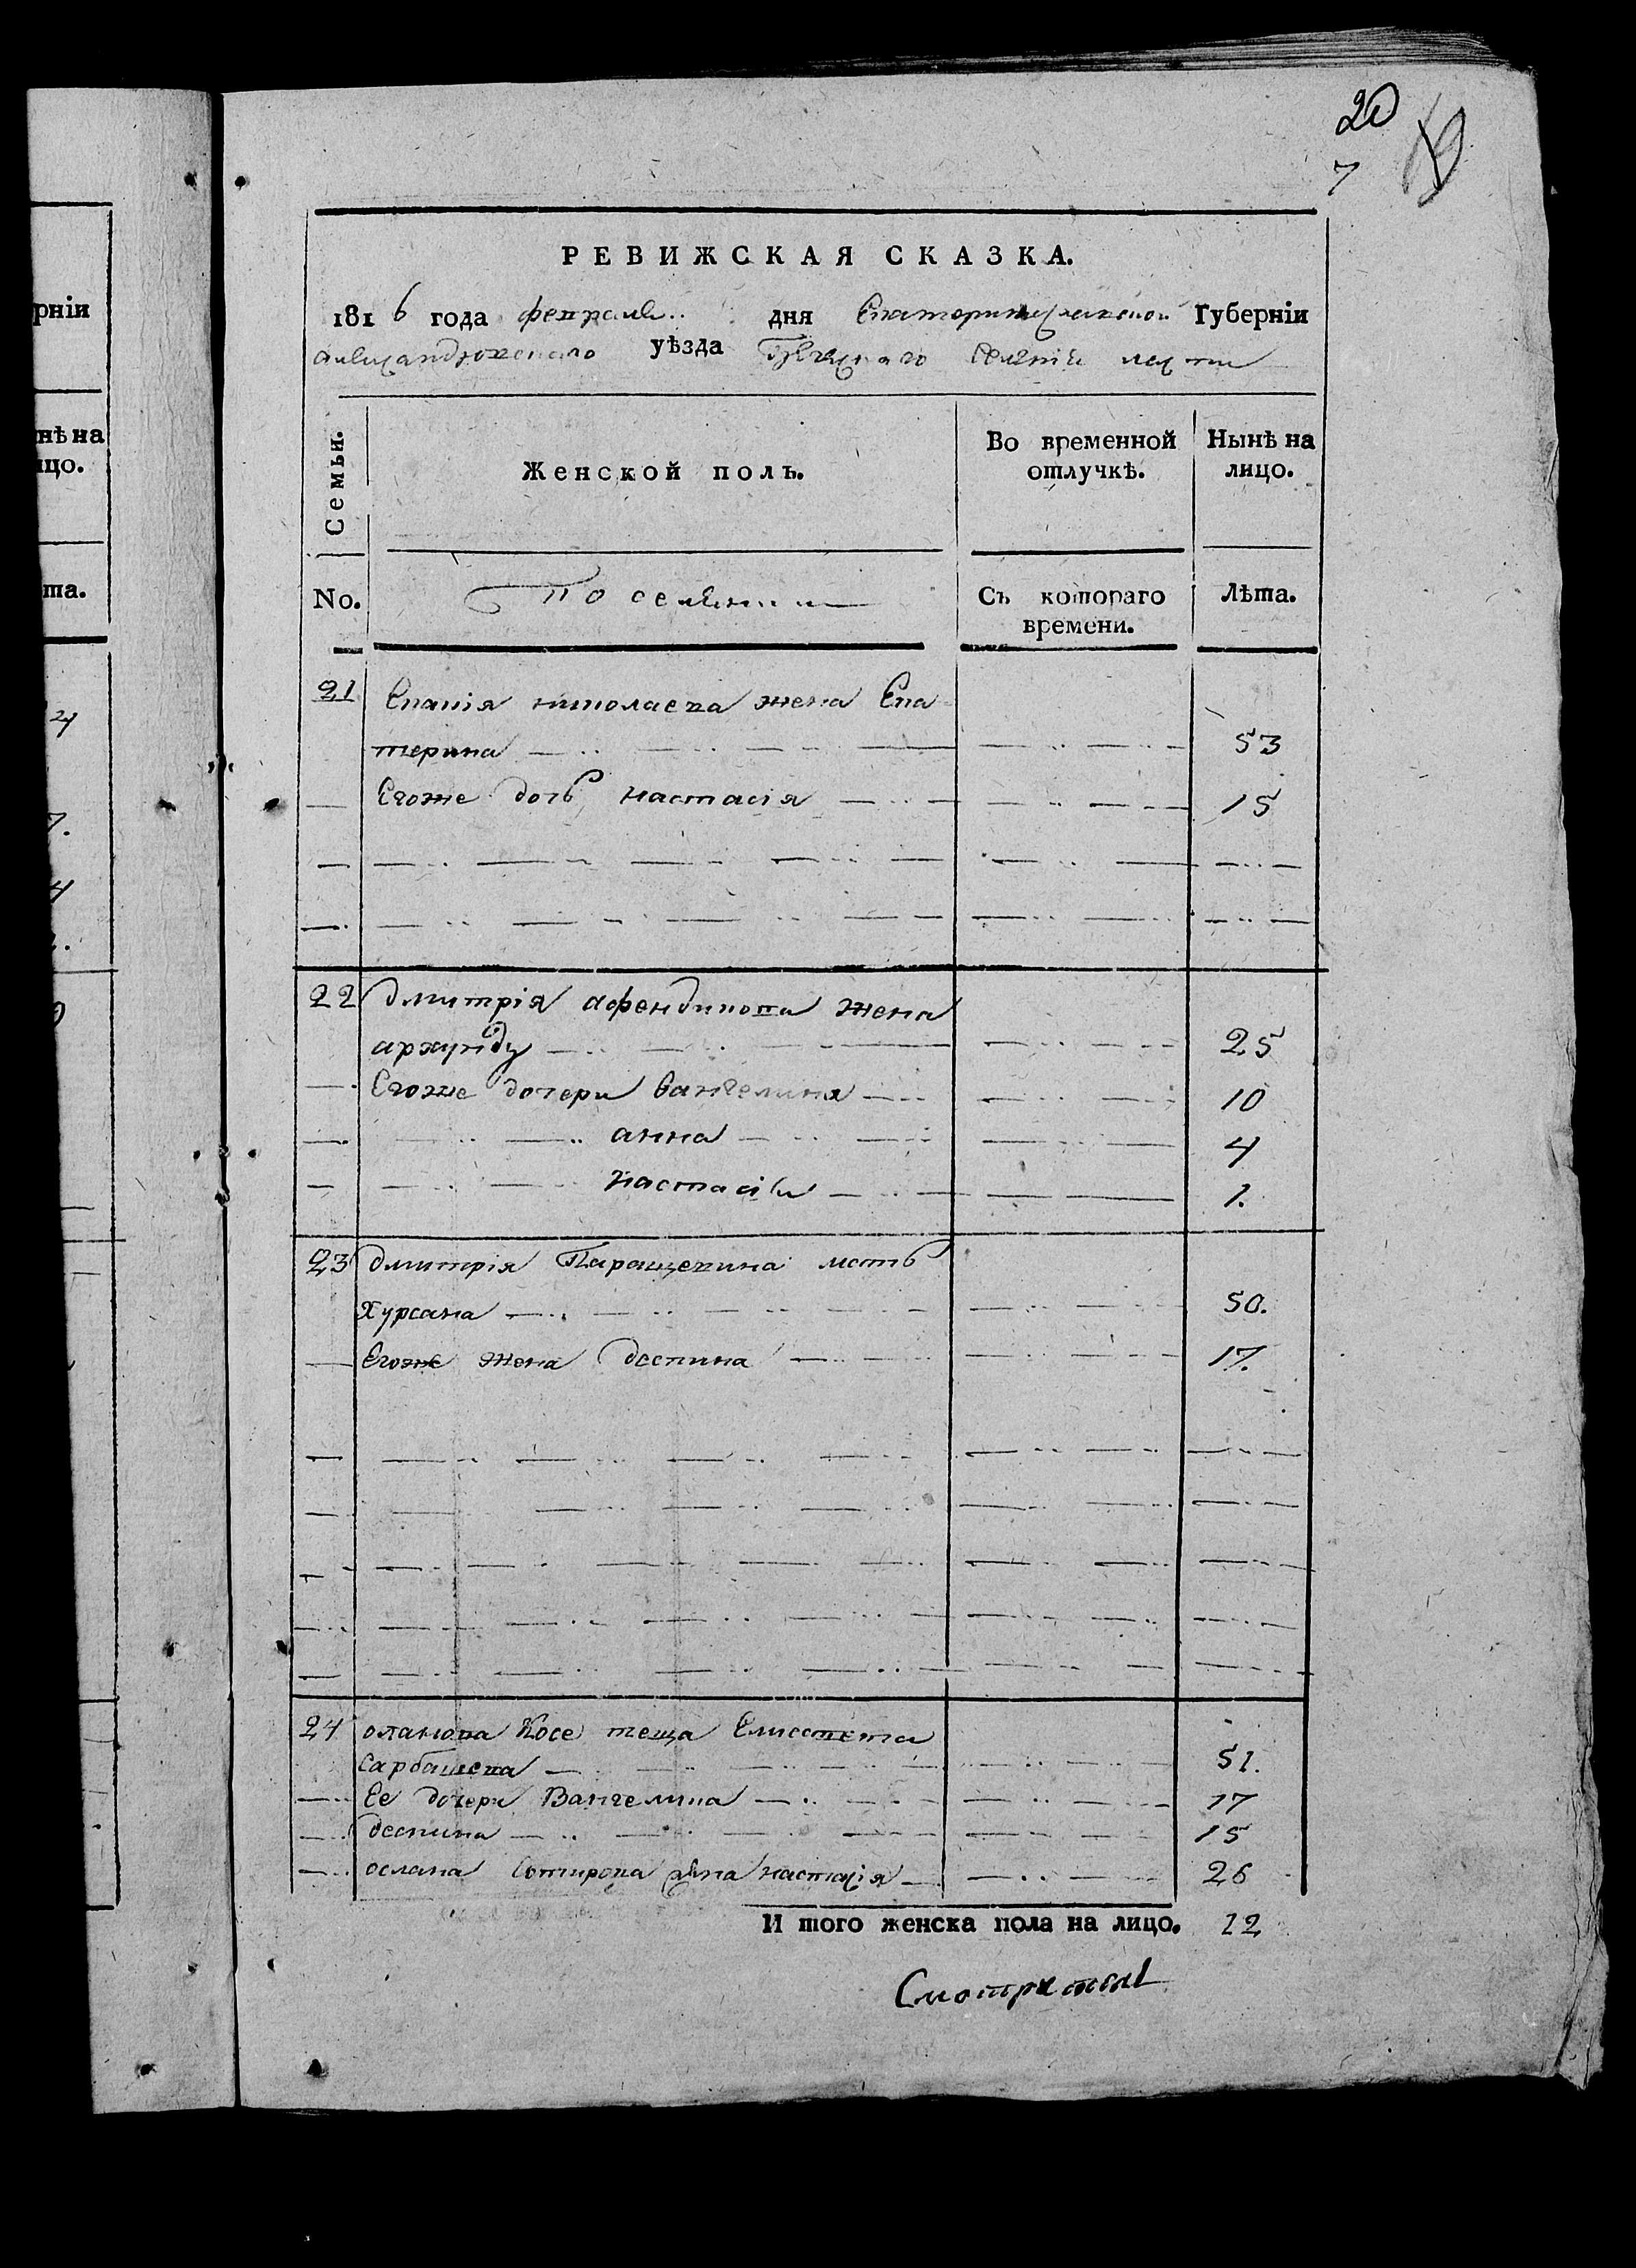 20
7 19
РЕВИЖСКАЯ СКАЗКА.
1816 года февраля дня Екатеринославской Губерніи
александровскаго уѣзда селенія
Семьи. Женской полъ. Во временной отлучкѣ. Нынѣ на лицо.
No. По селянки Съ котораго времени. Лѣта.
21 Епанія николаева жена Ека
терина 53
Егоже дочь настасія 15
22 дмитрія афендикова жена
архунду 25
Егоже дочери Вангелиня 10
анна 4
настасія 1.
23 дмитрія Паращевина мать
Хурсана 50.
Егоже жена деспина 17.
24 Косе теща Елисавета
Сарбашева 51.
Ее дочери Вангелина 17
деспина 15
ослана Сотирова жена настасія 26
И того женска пола на лицо. 12
Смотритель
рніи
нѣ на
ицо.
та.